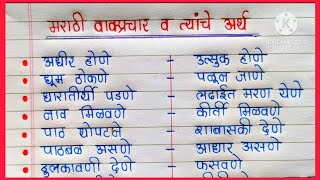 मराठी वाक्प्रचार व त्यांचे अर्थ
अधीर होणे - उत्सुक होणे
धूम ठोकणे - पळून जाणे
धारातीर्थी पडणे - लढाईत मरण येणे
नाव मिळवणे - कीर्ती मिळवणे
पाठ थोपटणे - शाबासकी देणे
पाठबळ असणे - आधार असणे
हुलकावणी देणे - फसवणे